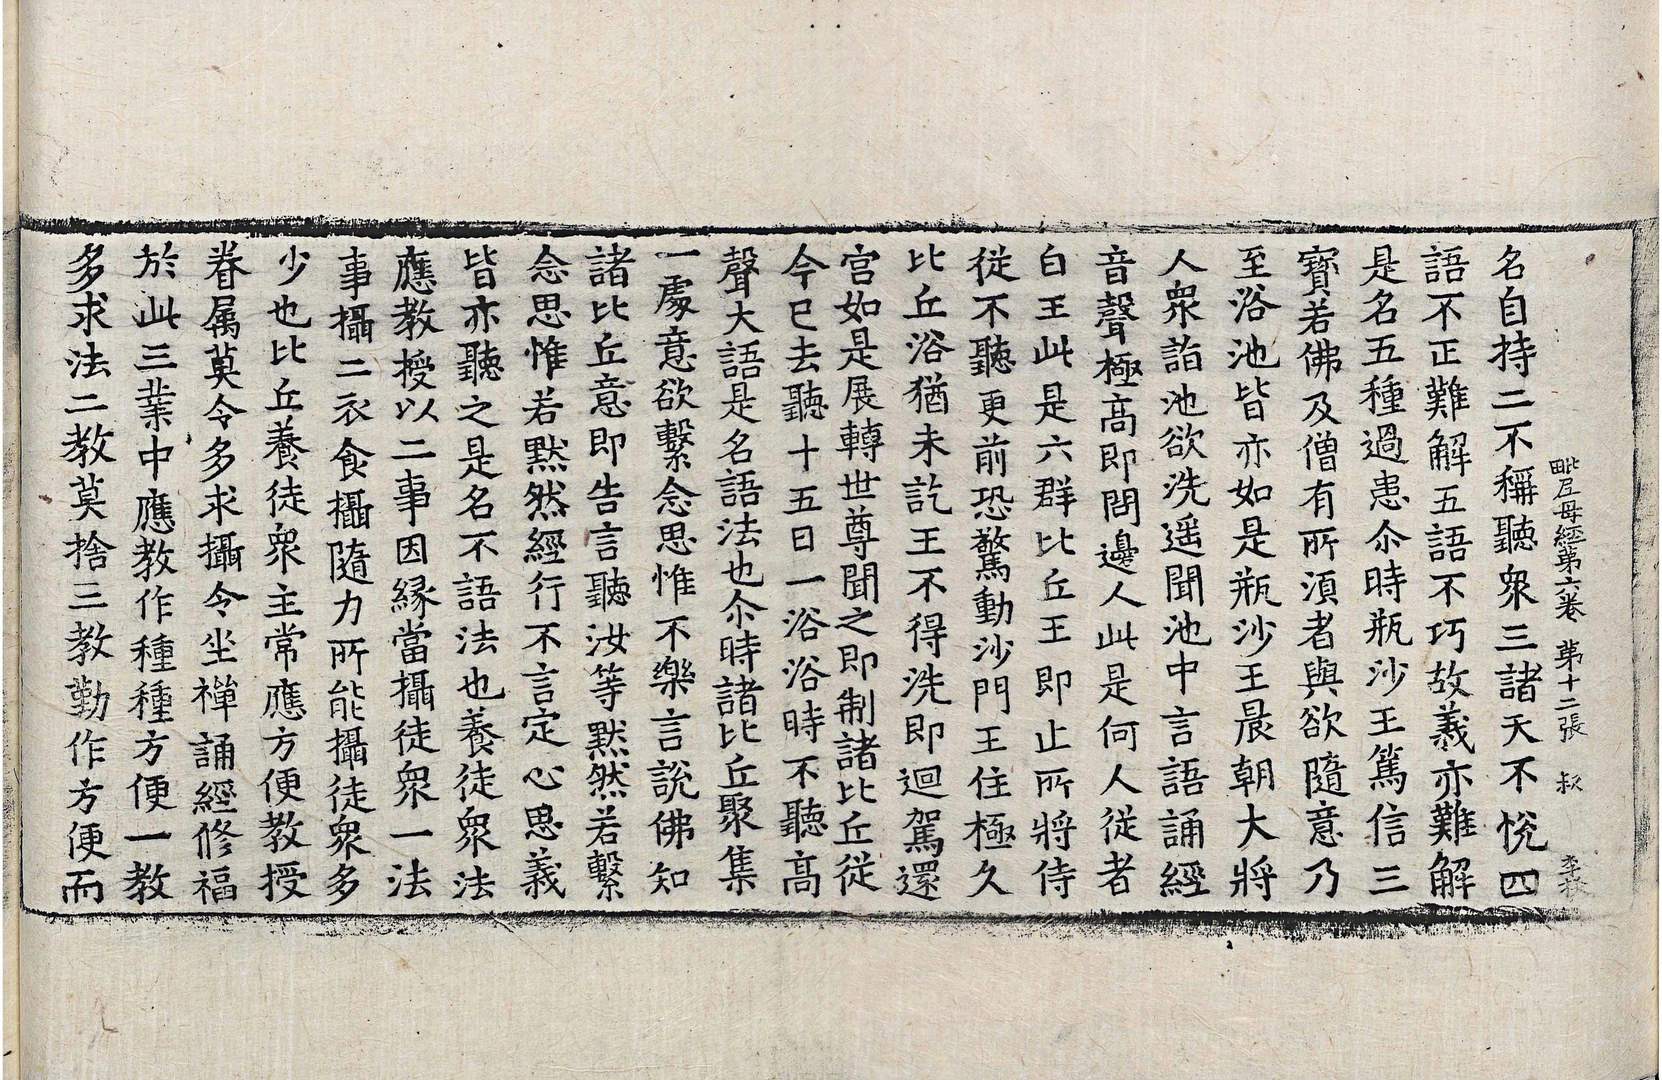 毗尼母經第六卷 第十二張 叔
名自持二不稱聽衆三諸天不悅四
語不正難解五語不巧故義亦難解
是名五種過患尒時瓶沙王篤信三
寶若佛及僧有所湏者與欲隨意乃
至浴池皆亦如是瓶沙王晨朝大將
人衆詣池欲洗遥聞池中言語誦經
音聲極髙即問邊人此是何人從者
白王此是六群比丘王即止所將侍
從不聽更前恐驚動沙門王住極久
比丘浴猶未訖王不得洗即迴駕還
宮如是展轉世尊聞之即制諸比丘從
今已去聽十五日一浴浴時不聽髙
聲大語是名語法也尒時諸比丘聚集
一處意欲繫念思惟不樂言說佛知
諸比丘意即告言聽汝等黙然若繫
念思惟若黙然經行不言定心思義
皆亦聽之是名不語法也養徒衆法
應教授以二事因縁當攝徒衆一法
事攝二衣食攝隨力所能攝徒衆多
少也比丘養徒衆主常應方便教授
眷属莫令多求攝令坐禪誦經修福
於此三業中應教作種種方便一教
多求法二教莫捨三教勤作方便而